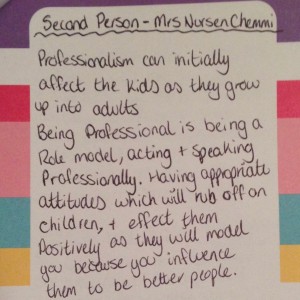 Second Person - Mrs Nursen Chemmi
Professionalism can initially
affect the kids as they grow
up into adults
Being Professional is being a
Role model, acting + speaking
Professionally. Having appropriate
attitudes which will rub off on
children, + effect them
Positively as they will model
you because you influence
them to be better people.